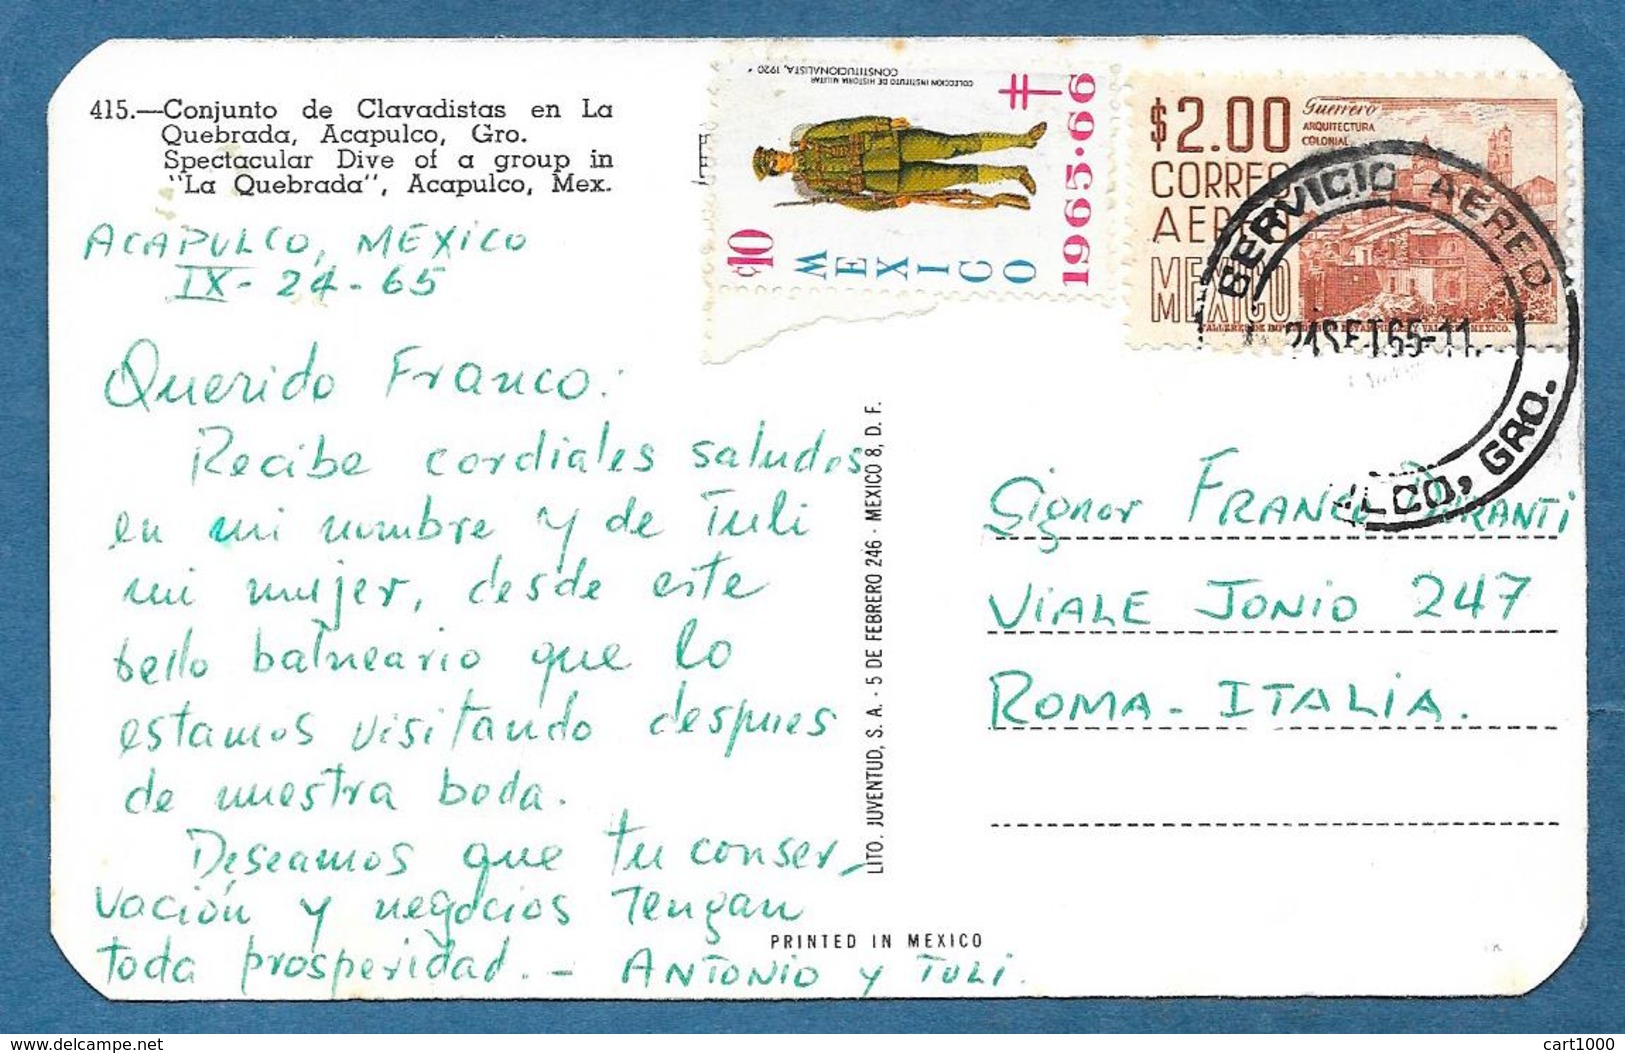 415.—Conjunto de Clavadistas en La
Quebrada, Acapulco, Gro.
Spectacular Dive of a group in
"La Quebrada", Acapulco, Mex.
ACAPULCO, MEXICO
IX - 24 - 65
Querido Franco:
Recibe cordiales saludos
en mi nombre y de Tuli
mi mujer, desde este
bello balneario que lo
estamos visitando despues
de nuestra boda.
Deseamos que tu conser-
vación y negocios Tengan
toda prosperidad. - ANTONIO Y TULI.
LITO. JUVENTUD, S. A. - 5 DE FEBRERO 246 - MEXICO 8, D. F.
PRINTED IN MEXICO
COLECCION INSTITUTO DE HISTORIA MILITAR
CONSTITUCIONALISTA, 1920
1965·66
¢10
MEXICO
$2.00
Guerrero
ARQUITECTURA
COLONIAL
CORREO
AEREO
MEXICO
SERVICIO AEREO
24SET65-11
LCO, GRO.
Signor FRANCO DURANTI
VIALE JONIO 247
ROMA - ITALIA.
delcampe.net
cart1000